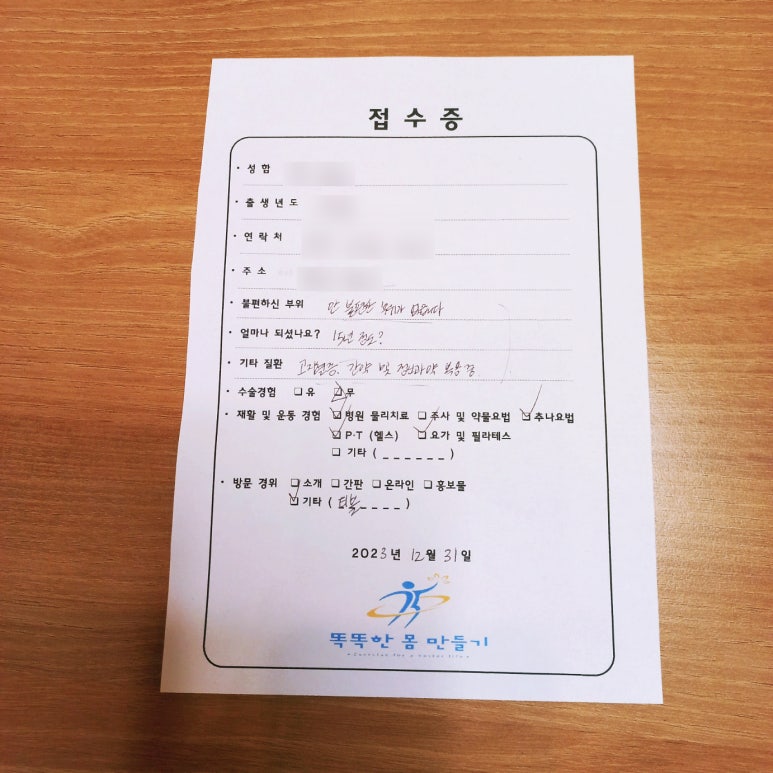 접수증
· 성함
· 출생년도
· 연락처
· 주소
· 불편하신 부위 안 불편한 부위가 없습니다
· 얼마나 되셨나요? 15년 정도?
· 기타 질환 고지혈증, 간약 및 정신과약 복용 중.
· 수술경험 □ 유 ☑ 무
· 재활 및 운동 경험 ☑ 병원 물리치료 □ 주사 및 약물요법 ☑ 추나요법
☑ P·T (헬스) ☑ 요가 및 필라테스
□ 기타 ( _ _ _ _ _ _ )
· 방문 경위 □ 소개 □ 간판 □ 온라인 □ 홍보물
☑ 기타 ( _ _ _ _ )
2023년 12월 31일
똑똑한 몸 만들기